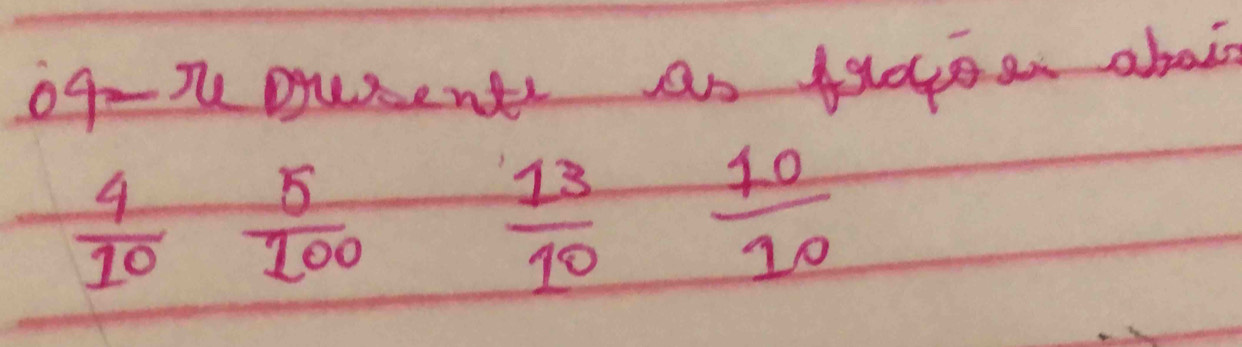 09- Represente as frações abaix
4/10 5/100 13/10 10/10